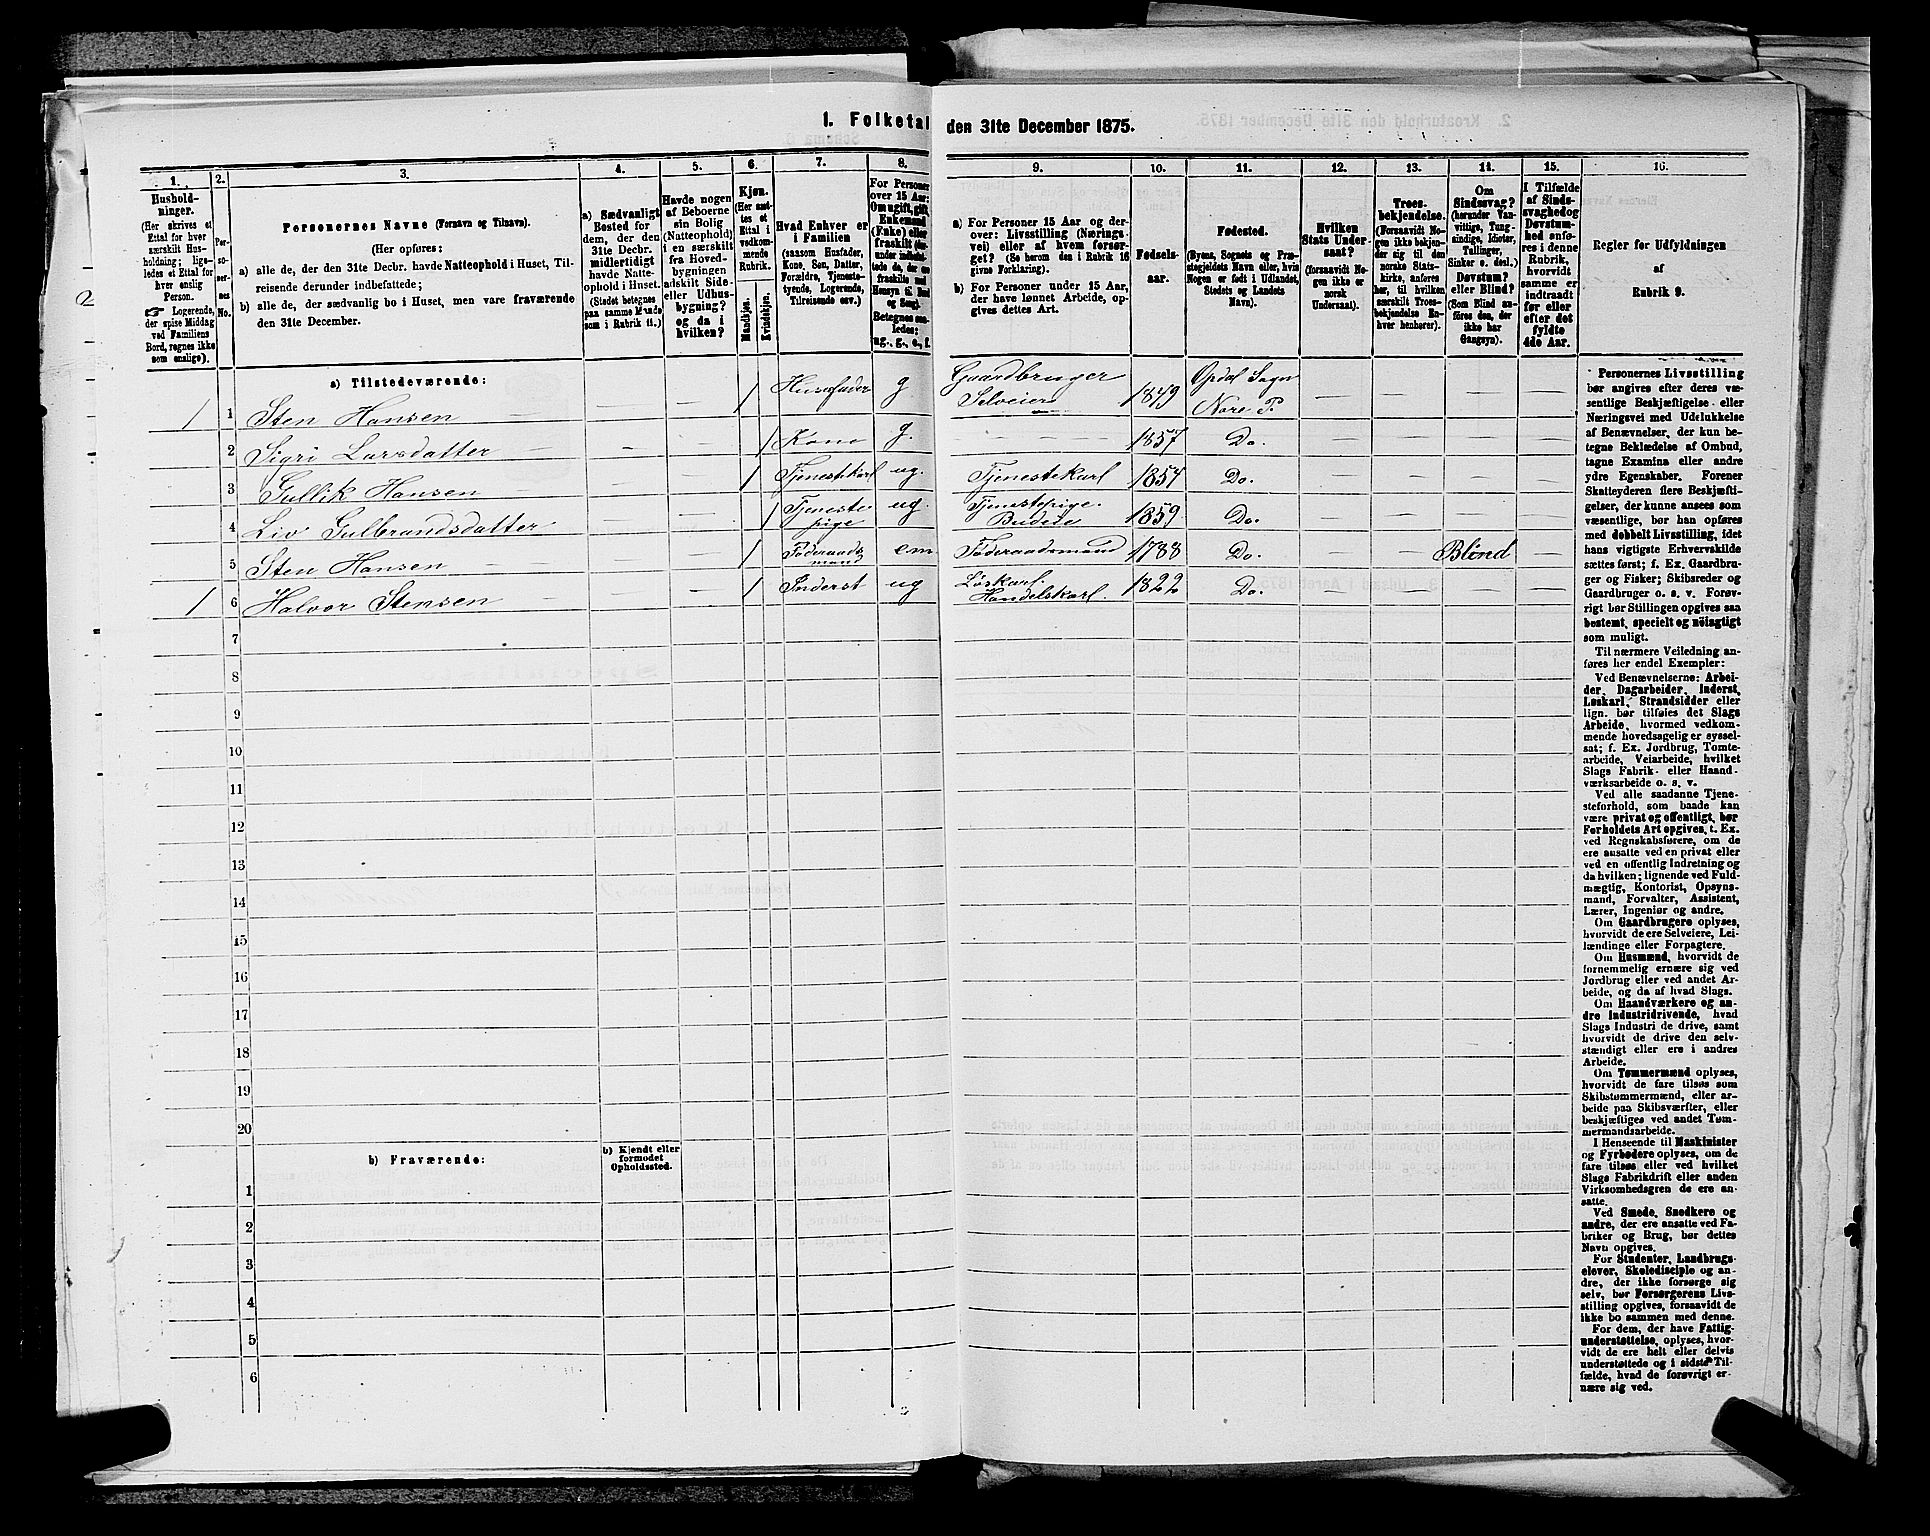 1. Folketal den 31te December 1875.
1.
2.
3.
4.
5.
6.
7.
8.
9.
10.
11.
12.
13.
14.
15.
16.
Hushold-
ninger.
(Her skrives et
Ettal for hver
særskilt Hus-
holdning; lige-
ledes et Ettal for
hver enslig
Person.
☛ Logerende,
der spise Middag
ved Familiens
Bord, regnes ikke
som enslige).
Per-
so-
ner-
nes
No.
Personernes Navne (Fornavn og Tilnavn).
(Her opføres:
a) alle de, der den 31te Decbr. havde Natteophold i Huset, Til-
reisende derunder indbefattede;
b) alle de, der sædvanlig bo i Huset, men vare fraværende
den 31te December.
a) Sædvanligt
Bosted for
dem, der den
31te Decbr.
midlertidigt
havde Natte-
ophold i Huset.
(Stedet betegnes
paa samme Maade
som i Rubrik 11.)
Havde nogen
af Beboerne
sin Bolig
(Natteophold)
i en særskilt
fra Hoved-
bygningen
adskilt Side-
eller Udhus-
bygning?
og da i
hvilken?
Kjøn.
(Her sæt-
tes et
Ettal i
vedkom-
mende
Rubrik.
Mandkjøn.
Kvindekjøn.
Hvad Enhver er
i Familien
(saasom Husfader,
Kone, Søn, Datter,
Forældre, Tjeneste-
tyende, Logerende,
Tilreisende osv.)
For Personer
over 15 Aar:
Om ugift, gift,
Enkemand
(Enke) eller
fraskilt
Betegnes saa-
ledes:
ug., g., e., f.
a) For Personer 15 Aar og der-
over: Livsstilling (Nærings-
vei) eller af hvem forsør-
get? (Se herom den i Rubrik 16
givne Forklaring).
b) For Personer under 15 Aar,
der have lønnet Arbeide, op-
gives dettes Art.
Fødsels-
aar.
Fødested.
(Byens, Sognets og Præ-
stegjeldets Navn eller, hvis
Nogen er født i Udlandet,
Stedets og Landets
Navn).
Hvilken
Stats Under-
saat?
(forsaavidt No-
gen ikke er
norsk
Undersaat).
Troes-
bekjendelse.
(Forsaavidt No-
gen ikke bekjen-
der sig til den
norske Stats-
kirke, anføres
her, til hvilken
særskilt Troes-
bekjendelse En-
hver henhører).
Om
Sindssvag?
(herunder Van-
vittige, Tung-
sindige, Idioter,
Tullinger,
Sinker o. desl.)
Døvstum?
eller Blind?
(Som Blind an-
føres den, der
ikke har
Gangsyn).
I Tilfælde
af Sinds-
svaghed og
Døvstum-
hed anfø-
res i denne
Rubrik,
hvorvidt
samme er
indtraadt
før eller
efter det
fyldte
4de Aar.
Regler for Udfyldningen
af
Rubrik 9.
2
a) Tilstedeværende:
1 1 Sten Hansen 1 Husfader g Gaardbruger Selveier 1849 Opdal Sogn Nore P.
2 Sigri Larsdatter 1 Kone g. 1857 Do.
3 Gullik Hansen 1 Tjenestekarl ug. Tjenestekarl 1854 Do.
4 Liv Gulbrandsdatter 1 Tjeneste pige ug. Tjenestepige. Budeie 1859 Do.
5 Sten Hansen 1 Føderaads mand em Føderaadsmand 1788 Do. Blind
1 6 Halvor Stensen 1 Inderst ug Løskarl. Handelskarl. 1822 Do.
7
8
9
10
11
12
13
14
15
16
17
18
19
20
b) Fraværende:
b) Kjendt eller
formodet
Opholdssted.
1
2
3
4
5
6
Personernes Livsstilling
bør angives efter deres væ-
sentlige Beskjæftigelse eller
Næringsvei med Udelukkelse
af Benævnelser, der kun be-
tegne Beklædelse af Ombud,
tagne Examina eller andre
ydre Egenskaber. Forener
Skatteyderen flere Beskjæfti-
gelser, der kunne ansees som
væsentlige, bør han opføres
med dobbelt Livsstilling, idet
hans vigtigste Erhvervskilde
sættes først; f. Ex. Gaardbru-
ger og Fisker; Skibsreder og
Gaardbruger o. s. v. Forøv-
rigt bør Stillingen opgives saa
bestemt, specielt og nöiagtigt
som muligt.
Til nærmere Veiledning an-
føres her endel Exempler:
Ved Benævnelserne: Arbei-
der, Dagarbeider, Inderst,
Løskarl, Strandsidder eller
lign. bør tilføies det Slags
Arbeide, hvormed vedkom-
mende hovedsagelig er syssel-
sat; f. Ex. Jordbrug, Tomte-
arbeide, Veiarbeide, hvilket
Slags Fabrik- eller Haand-
værksarbeide o. s. v.
Ved alle saadanne Tjene-
steforhold, som baade kan
være privat og offentligt, bør
Forholdets Art opgives, t. Ex.
ved Regnskabsførere, om de
ere ansatte ved en privat eller
ved en offentlig Indretning og
da hvilken; lignende ved Fuld-
mægtig, Kontorist, Opsyns-
mand, Forvalter, Assistent,
Lærer, Ingeniør og andre.
Om Gaardbrugere oplyses,
hvorvidt de ere Selveiere, Lei-
lændinge eller Forpagtere.
Om Husmænd, hvorvidt de
fornemmelig ernære sig ved
Jordbrug eller ved andet Ar-
beide, og da af hvad Slags.
Om Haandværkere og an-
dre Industridrivende, hvad
Slags Industri de drive, samt
hvorvidt de drive den selv-
stændigt eller ere i andres
Arbeide.
Om Tømmermænd oplyses,
hvorvidt de fare tilsøs som
Skibstømmermænd, eller ar-
beide paa Skibsværfter, eller
beskjæftiges ved andet Tøm-
mermandsarbeide.
I Henseende til Maskinister
og Fyrbødere oplyses, om de
fare tilsøs eller ved hvilket
Slags Fabrikdrift eller anden
Virksomhedsgren de ere an-
satte.
Ved Smede, Snedkere og
andre, der ere ansatte ved Fa-
briker og Brug, bør dettes
Navn opgives.
For Studenter, Landbrugs-
elever, Skoledisciple og an-
dre, der ikke forsørge sig
selv, bør Forsørgerens Livs-
stilling opgives, forsaavidt de
ikke bo sammen med denne.
For dem, der have Fattig-
understøttelse, oplyses, hvor-
vidt de ere helt eller delvis
understøttede og i sidste Til-
fælde, hvad de forøvrigt er-
nære sig ved.